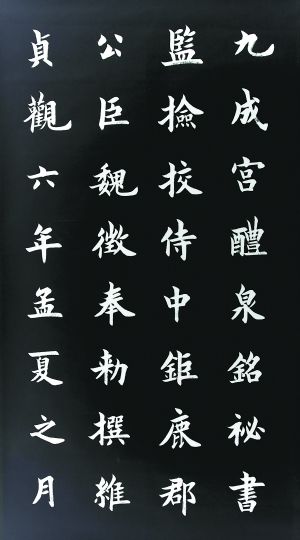 九成宮醴泉銘祕書
監撿挍侍中鉅鹿郡
公臣魏徵奉勑撰維
貞觀六年孟夏之月